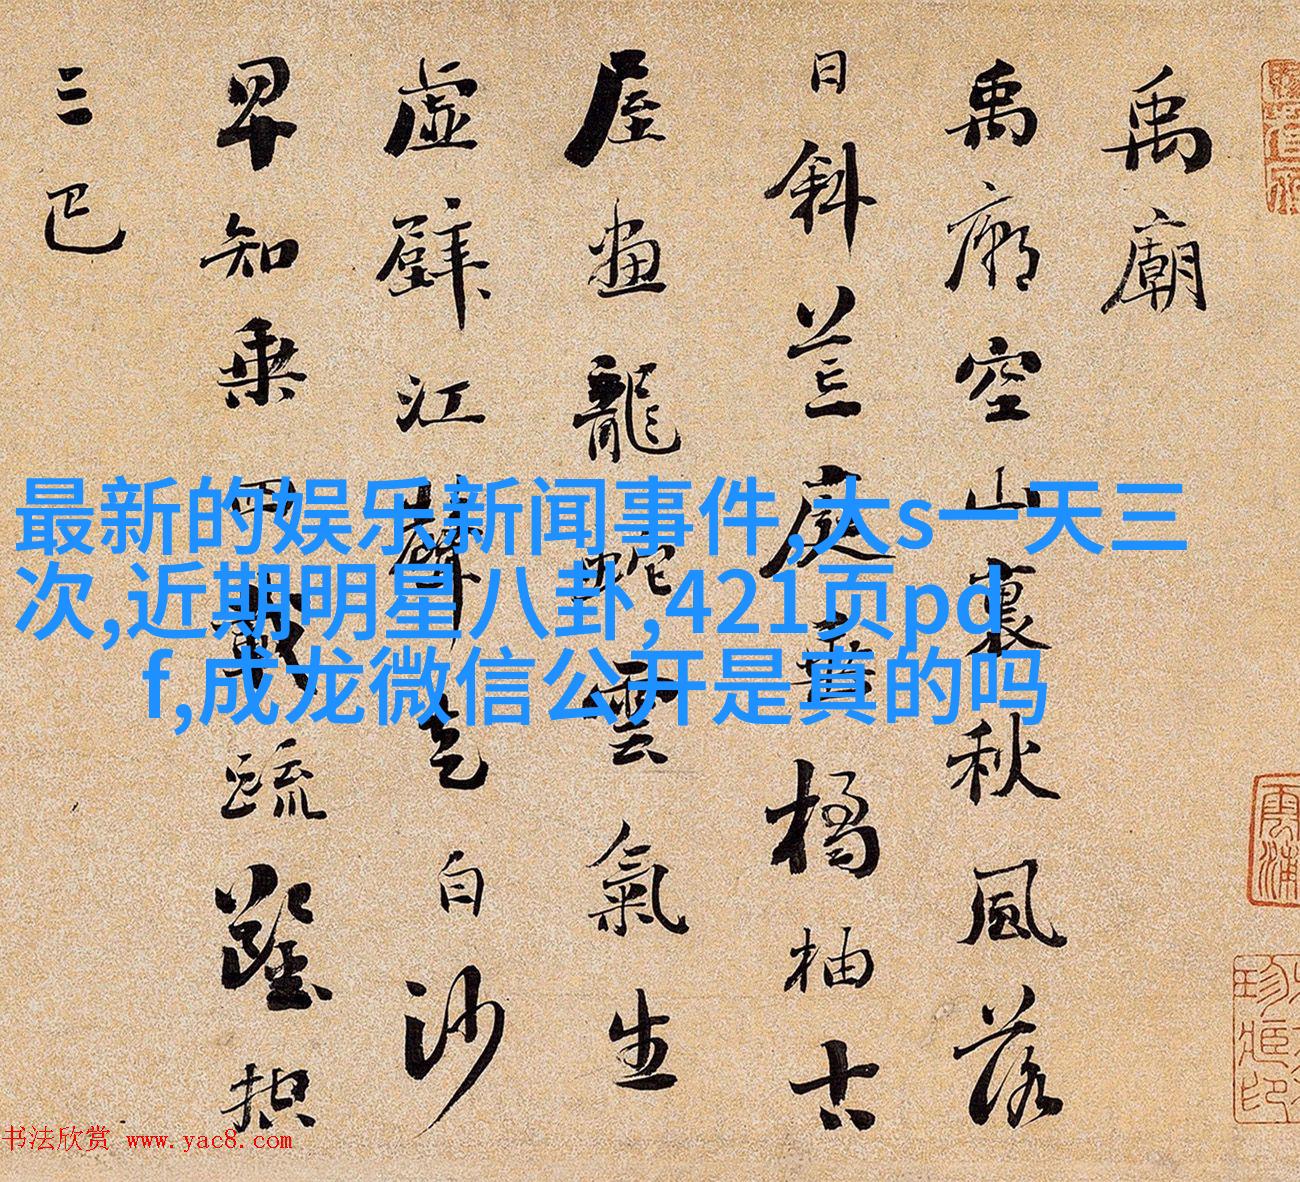 禹廟
禹廟空山裏秋風落
日斜荒庭垂橘柚古
屋畫龍蛇雲氣生
虛壁江聲走白沙
早知乘四載疏鑿控
三巴
最新的娱乐新闻事件,大s一天三
次,近期明星八卦,421页pd
f,成龙微信公开是真的吗
书法欣赏 www.yac8.com